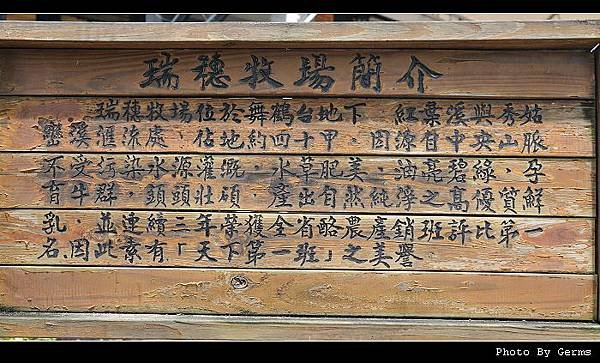 瑞穗牧場簡介
瑞穗牧場位於舞鶴台地下，紅葉溪與秀姑
巒溪滙流處，佔地約四十甲，因緣自中央山脈
不受污染水源灌溉，水草肥美，油亮碧綠，孕
育牛群，頭頭壯碩，產出自然純淨之高優質鮮
乳，並連續三年榮獲全省酪農產銷班評比第一
名，因此素有「天下第一班」之美譽
Photo By Germs